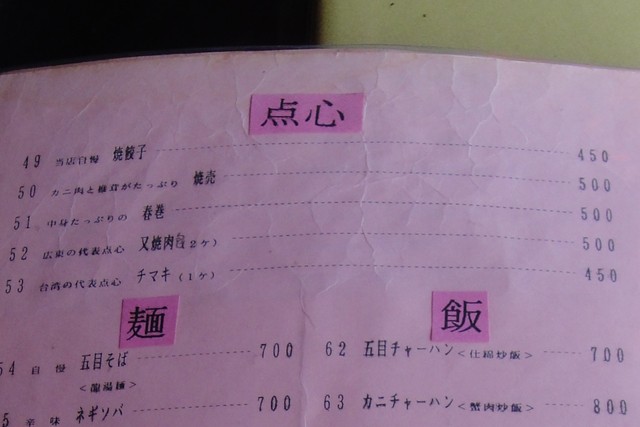 点心
49 当店自慢 焼餃子 450
50 カニ肉と椎茸がたっぷり 焼売 500
51 中身たっぷりの 春巻 500
52 広東の代表点心 叉焼肉包(2ケ) 500
53 台湾の代表点心 チマキ(1ケ) 450
麺
54 自慢 五目そば 700
5 辛味 ネギソバ 700
飯
62 五目チャーハン 700
63 カニチャーハン<蟹肉炒飯> 800